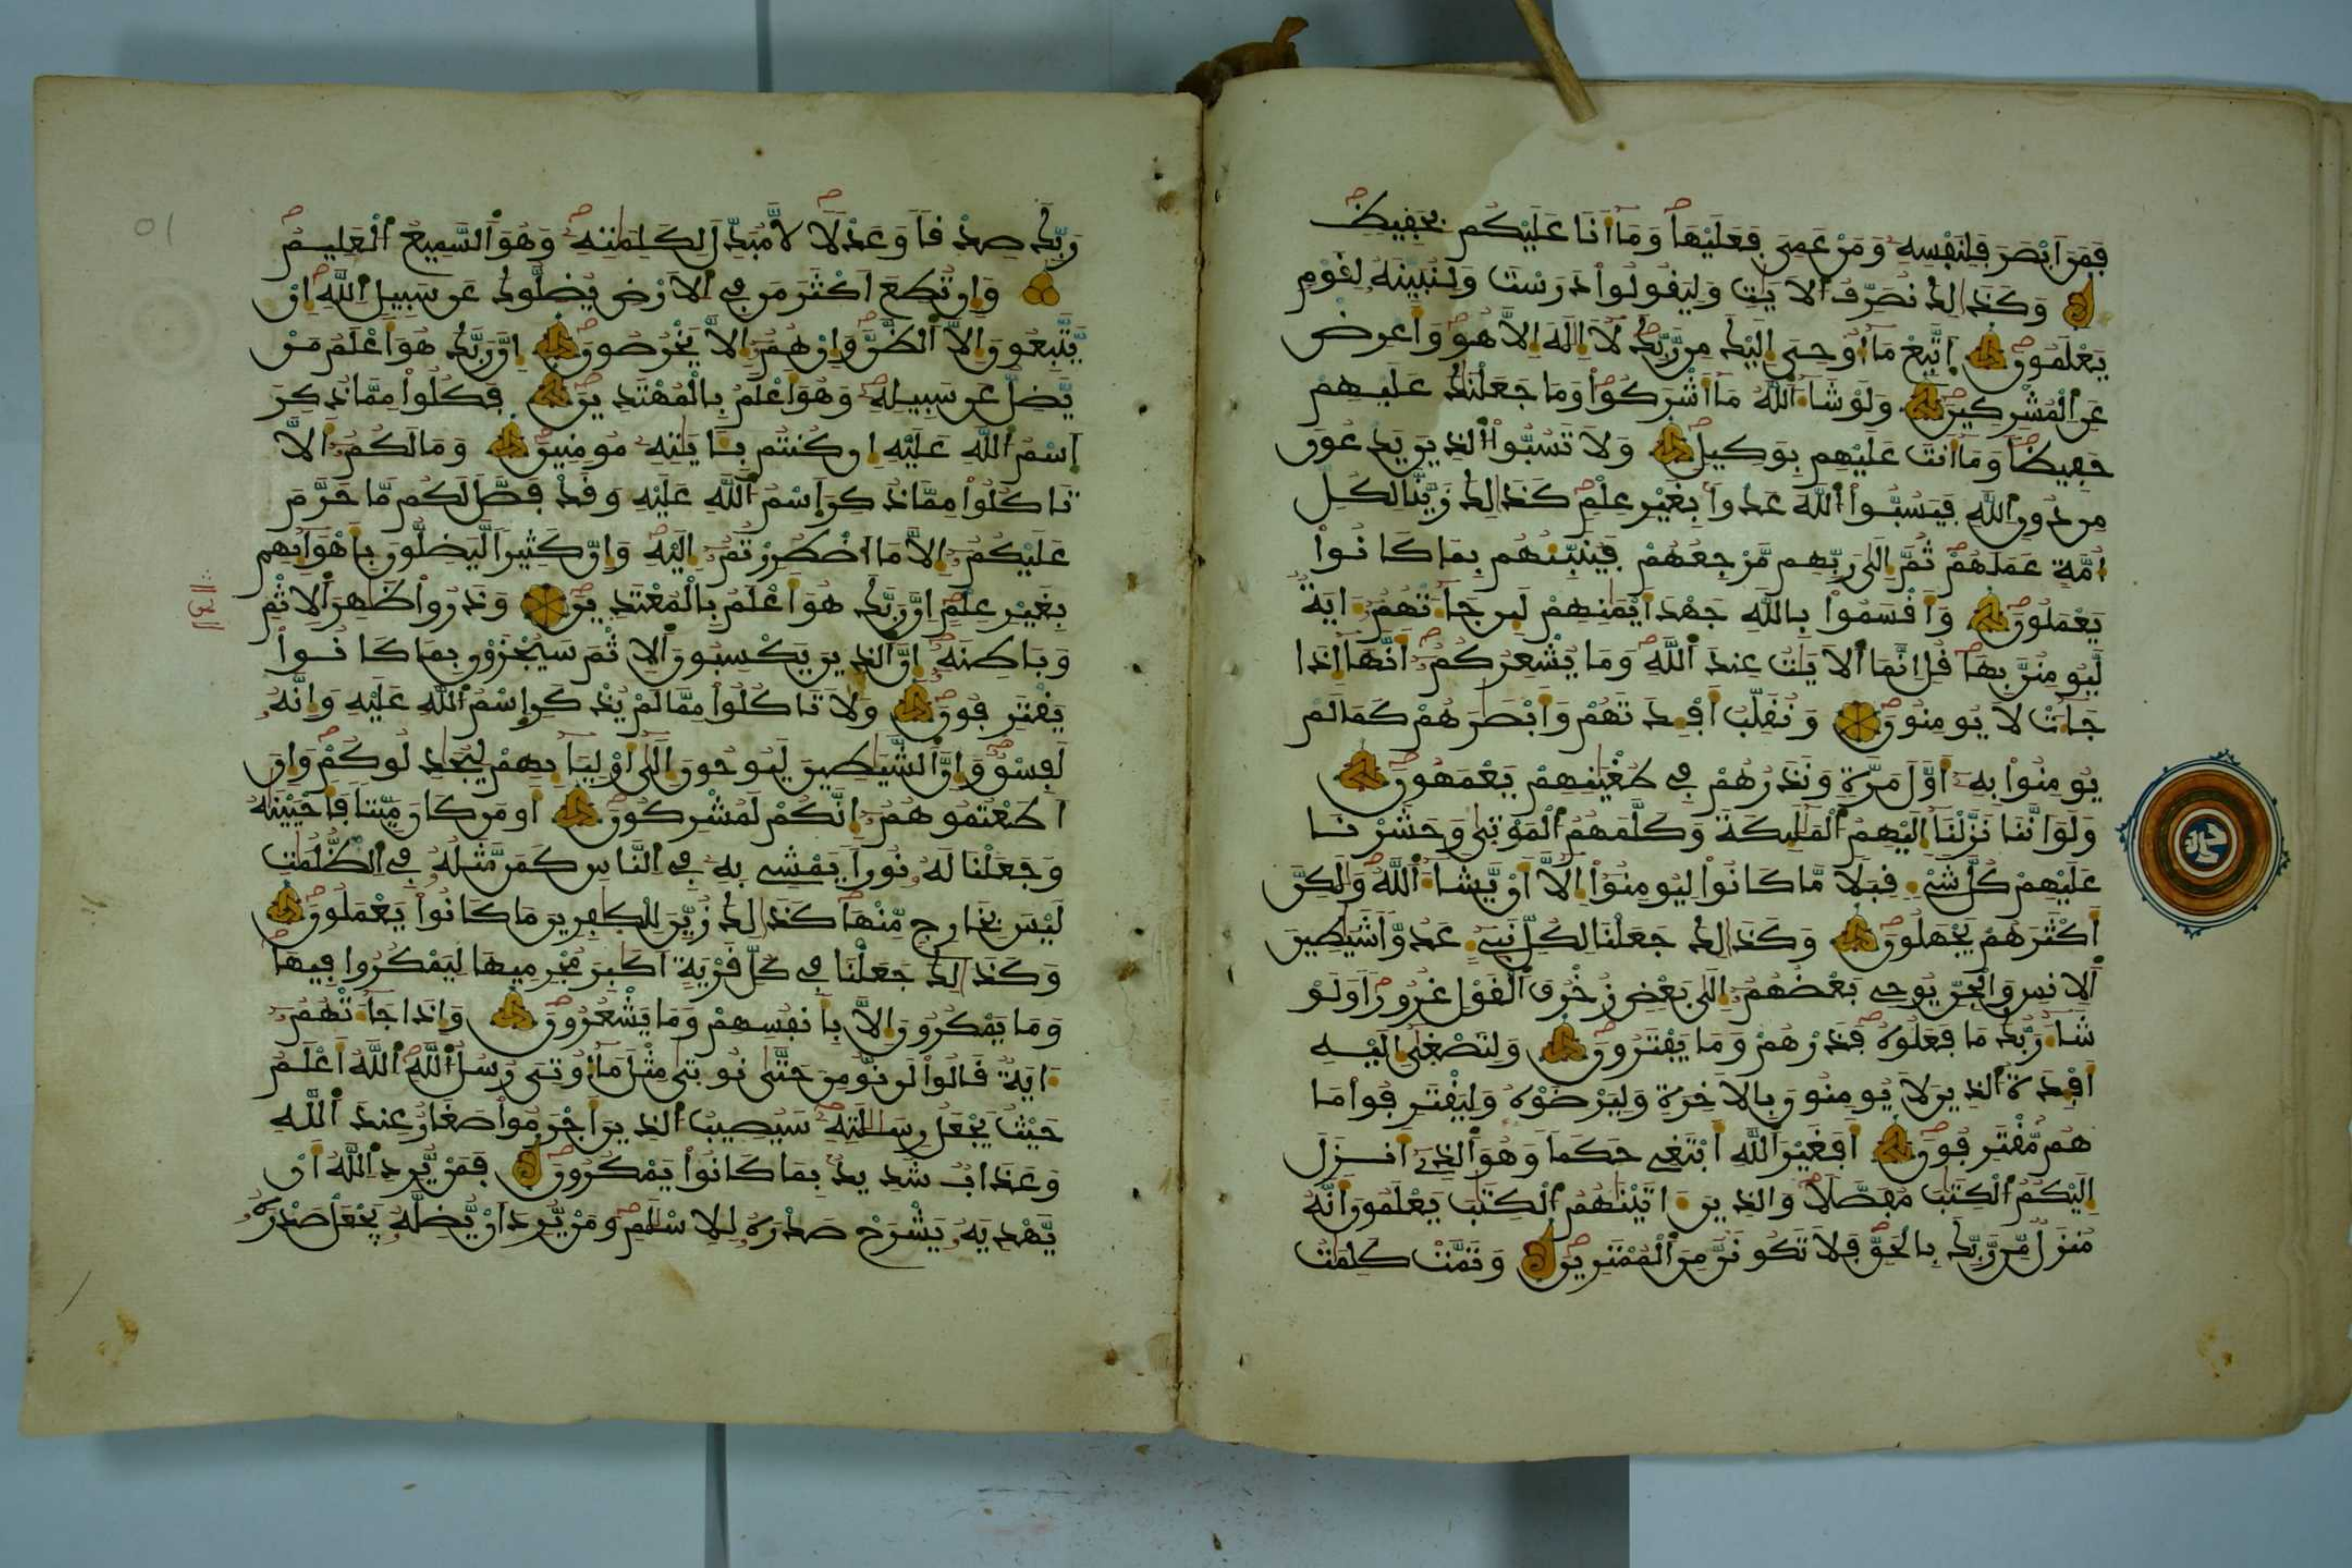 فمن ابصر فلنفسه ومن عمى فعليها وما أنا عليكم بحفيظ
وكذلك نصرف الايت وليقولوا درست ولنبينه لقوم
يعلمون اتبع ما أوحى إليك من ربك لا إله الا هو واعرض
عن المشركين ولو شاء الله ما أشركوا وما جعلنك عليهم
حفيظا وما أنت عليهم بوكيل ولا تسبوا الذين يدعون
من دون الله فيسبوا الله عدوا بغير علم كذلك زينا لكل
امة عملهم ثم إلى ربهم مرجعهم فينبئهم بما كانوا
يعملون وأقسموا بالله جهد أيمنهم لين جاءتهم ءاية
ليومنن بها قل انما الايت عند الله وما يشعركم أنها إذا
جاءت لا يومنون ونقلب أفدتهم وأبصرهم كما لم
يومنوا به أول مرة ونذرهم في طغينهم يعمهون
ولو اننا نزلنا إليهم المليكة وكلمهم الموتى وحشرنا
عليهم كل شيء قبلا ما كانوا ليومنوا إلا أن يشاء الله ولكن
أكثرهم يجهلون وكذلك جعلنا لكل نبيء عدوا شيطين
الانس والجن يوحى بعضهم إلى بعض زخرف القول غرورا ولو
شاء ربك ما فعلوه فذرهم وما يفترون ولتصغى إليه
أفدة الذين لا يومنون بالاخرة وليرضوه وليقترفوا ما
هم مقترفون أفغير الله أبتغى حكما وهو الذي أنزل
إليكم الكتب مفصلا والذين ءاتينهم الكتب يعلمون أنه
منزل من ربك بالحق فلا تكونن من الممترين وتمت كلمت
ربك صدقا وعدلا لا مبدل لكلمته وهو السميع العليم
وان تطع اكثر من في الارض يضلوك عن سبيل الله ان
يتبعون إلا الظن وان هم إلا يخرصون ان ربك هو أعلم من
يضل عن سبيله وهو أعلم بالمهتدين فكلوا مما ذكر
اسم الله عليه ان كنتم بايته مومنين وما لكم الا
تاكلوا مما ذكر اسم الله عليه وقد فصل لكم ما حرم
عليكم إلا ما اضطررتم إليه وان كثيرا ليضلون بأهوايهم
بغير علم ان ربك هو أعلم بالمعتدين وذروا ظهر الاثم
وباطنه ان الذين يكسبون الاثم سيجزون بما كانوا
يقترفون ولا تاكلوا مما لم يذكر اسم الله عليه وإنه
لفسق وان الشيطين ليوحون إلى أوليايهم ليجدلوكم وان
اطعتموهم إنكم لمشركون أو من كان ميتا فأحيينه
وجعلنا له نورا يمشى به في الناس كمن مثله في الظلمت
ليس بخارج منها كذلك زين للكفرين ما كانوا يعملون
وكذلك جعلنا في كل قرية أكبر مجرميها ليمكروا فيها
وما يمكرون إلا بأنفسهم وما يشعرون وإذا جاءتهم
ءاية قالوا لن نومن حتى نوتى مثل ما أوتى رسل الله الله أعلم
حيث يجعل رسلته سيصيب الذين أجرموا صغار عند الله
وعذاب شديد بما كانوا يمكرون فمن يرد الله أن
يهديه يشرح صدره للاسلم ومن يرد أن يضله يجعل صدره